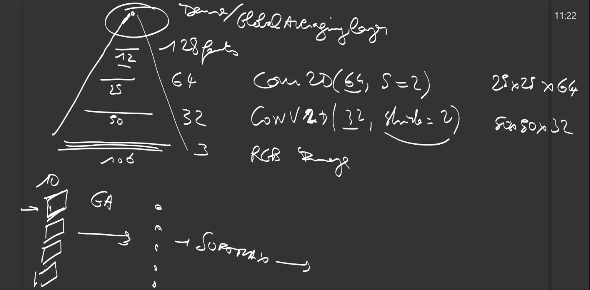 11:22
Dense/Global Averaging layer
128 feats
12
64
Conv2D(64, S=2)
25x25x64
25
50
32
Conv2D(32, stride=2)
50x50x32
100
3
RGB Image
10
GA
Softmax